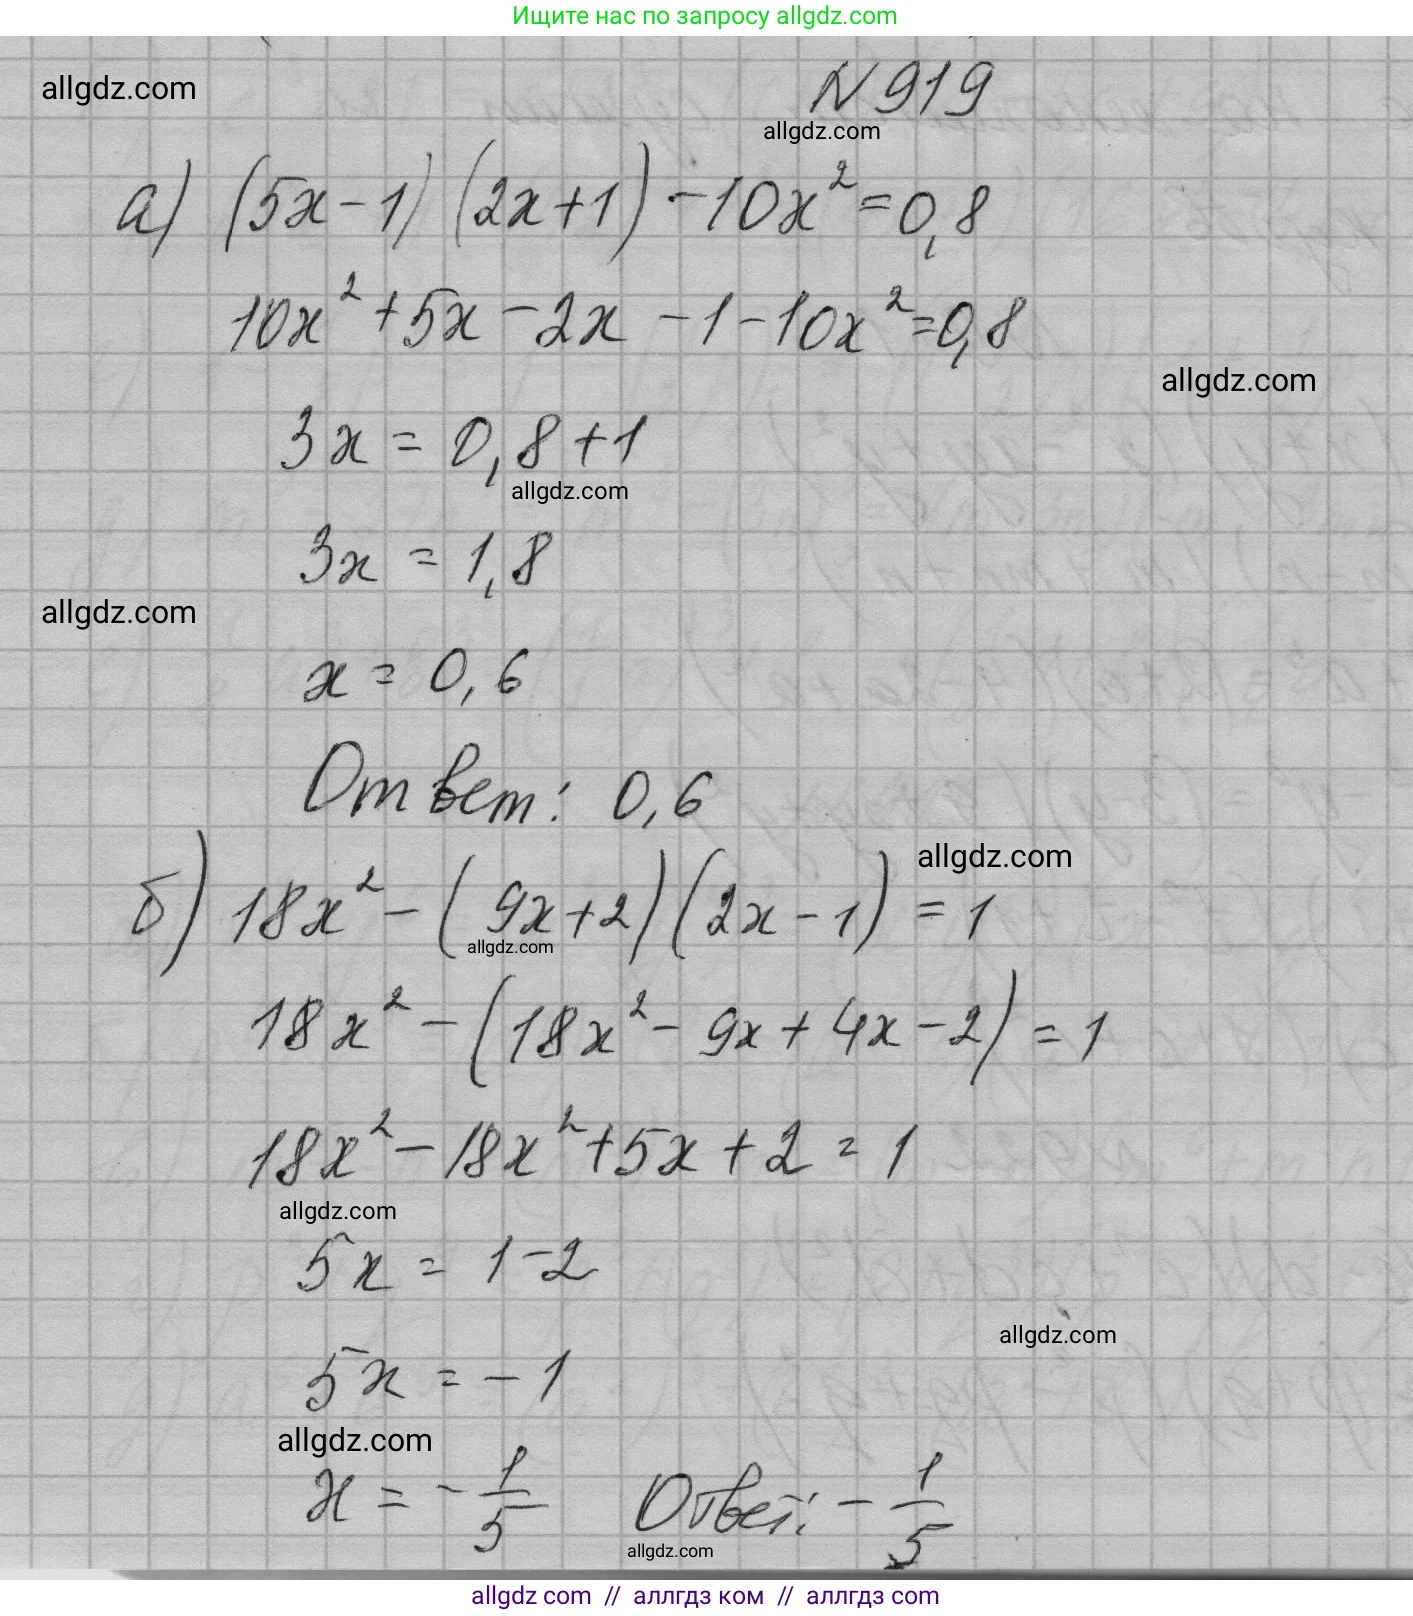 Ищите нас по запросу allgdz.com
allgdz.com
N 919
allgdz.com
а) (5x-1)(2x+1)-10x²=0,8
10x²+5x-2x-1-10x²=0,8
allgdz.com
3x=0,8+1
allgdz.com
3x=1,8
allgdz.com
x=0,6
Ответ: 0,6
allgdz.com
б) 18x²-(9x+2)(2x-1)=1
allgdz.com
18x²-(18x²-9x+4x-2)=1
18x²-18x²+5x+2=1
allgdz.com
5x=1-2
allgdz.com
5x=-1
allgdz.com
x=-1/5 Ответ: -1/5
allgdz.com
allgdz.com // аллгдз ком // аллгдз.com